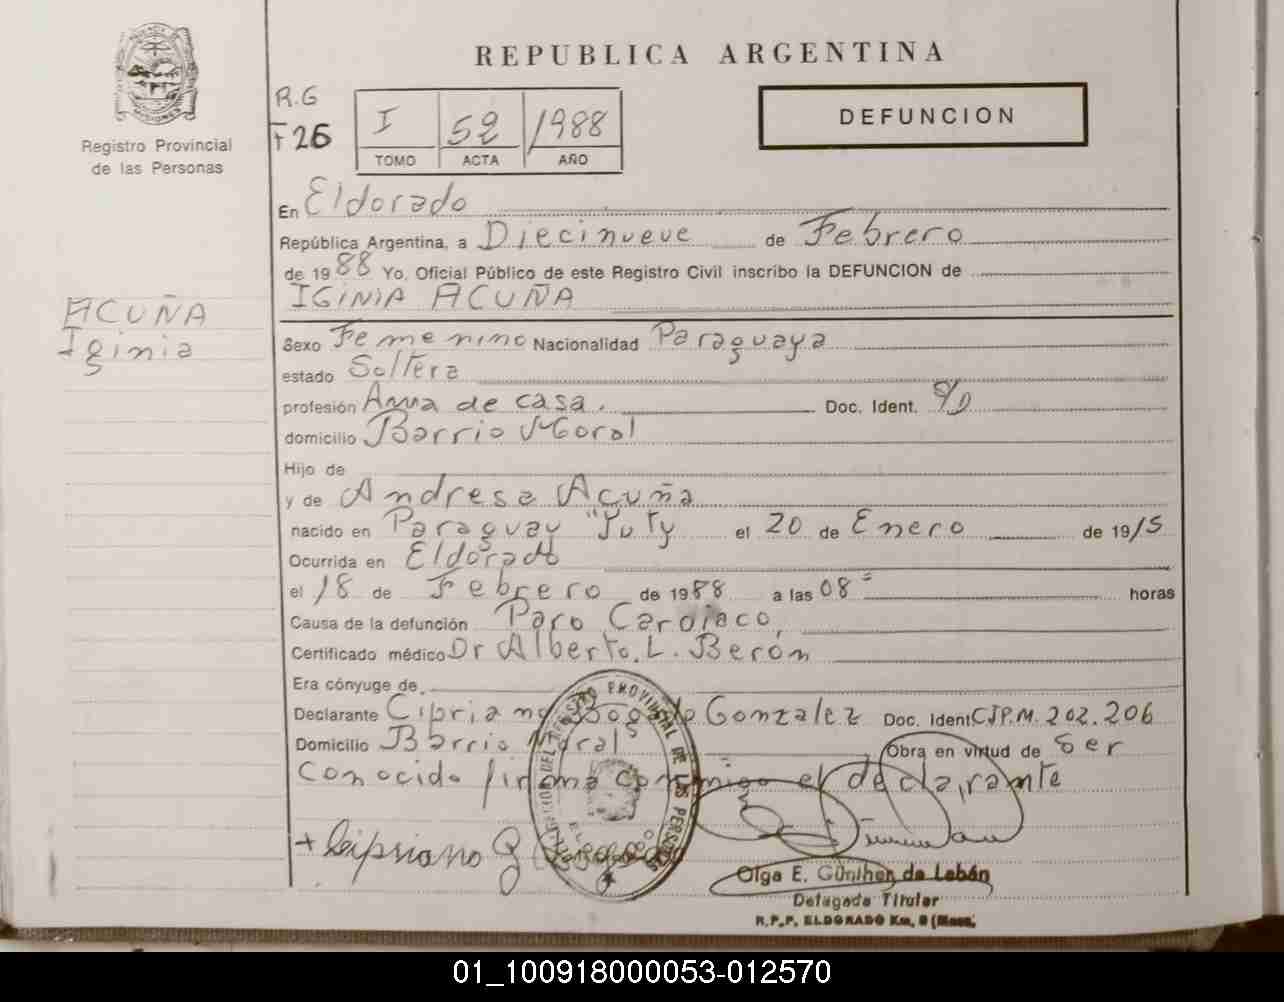 REPUBLICA ARGENTINA
PROVINCIA DE
MISIONES
Registro Provincial
de las Personas
R.G
F 26
I 52 1988
TOMO ACTA AÑO
DEFUNCION
En Eldorado
República Argentina, a Diecinueve de Febrero
de 1988 Yo, Oficial Público de este Registro Civil inscribo la DEFUNCION de
IGINIA ACUÑA
ACUÑA
Iginia
Sexo Femenino Nacionalidad Paraguaya
estado Soltera
profesión Ama de casa. Doc. Ident. S/D
domicilio Barrio Moral
Hijo de
y de Andresa Acuña
nacido en Paraguay "Yuty el 20 de Enero de 1915
Ocurrida en Eldorado
el 18 de Febrero de 1988 a las 08 horas
Causa de la defunción Paro Cardiaco,
Certificado médico Dr Alberto. L. Berón
Era cónyuge de
Declarante Cipriano Bogado Gonzalez Doc. Ident CIP.M. 202.206
Domicilio Barrio Moral Obra en virtud de Ser
Conocido firma conmigo el declarante
REGISTRO PROVINCIAL DE LAS PERSONAS
+ Cipriano G
Olga E. Günther de Lebán
Delegada Titular
R.P.P. ELDORADO Km. 9 (Mnes.
01_100918000053-012570